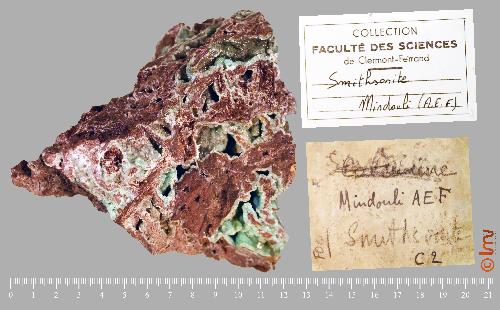 COLLECTION
FACULTÉ DES SCIENCES
de Clermont-Ferrand
Smithsonite
Mindouli (A.E.F)
Mindouli AEF
Smithsonite
C2
lmv
0 1 2 3 4 5 6 7 8 9 10 11 12 13 14 15 16 17 18 19 20 21